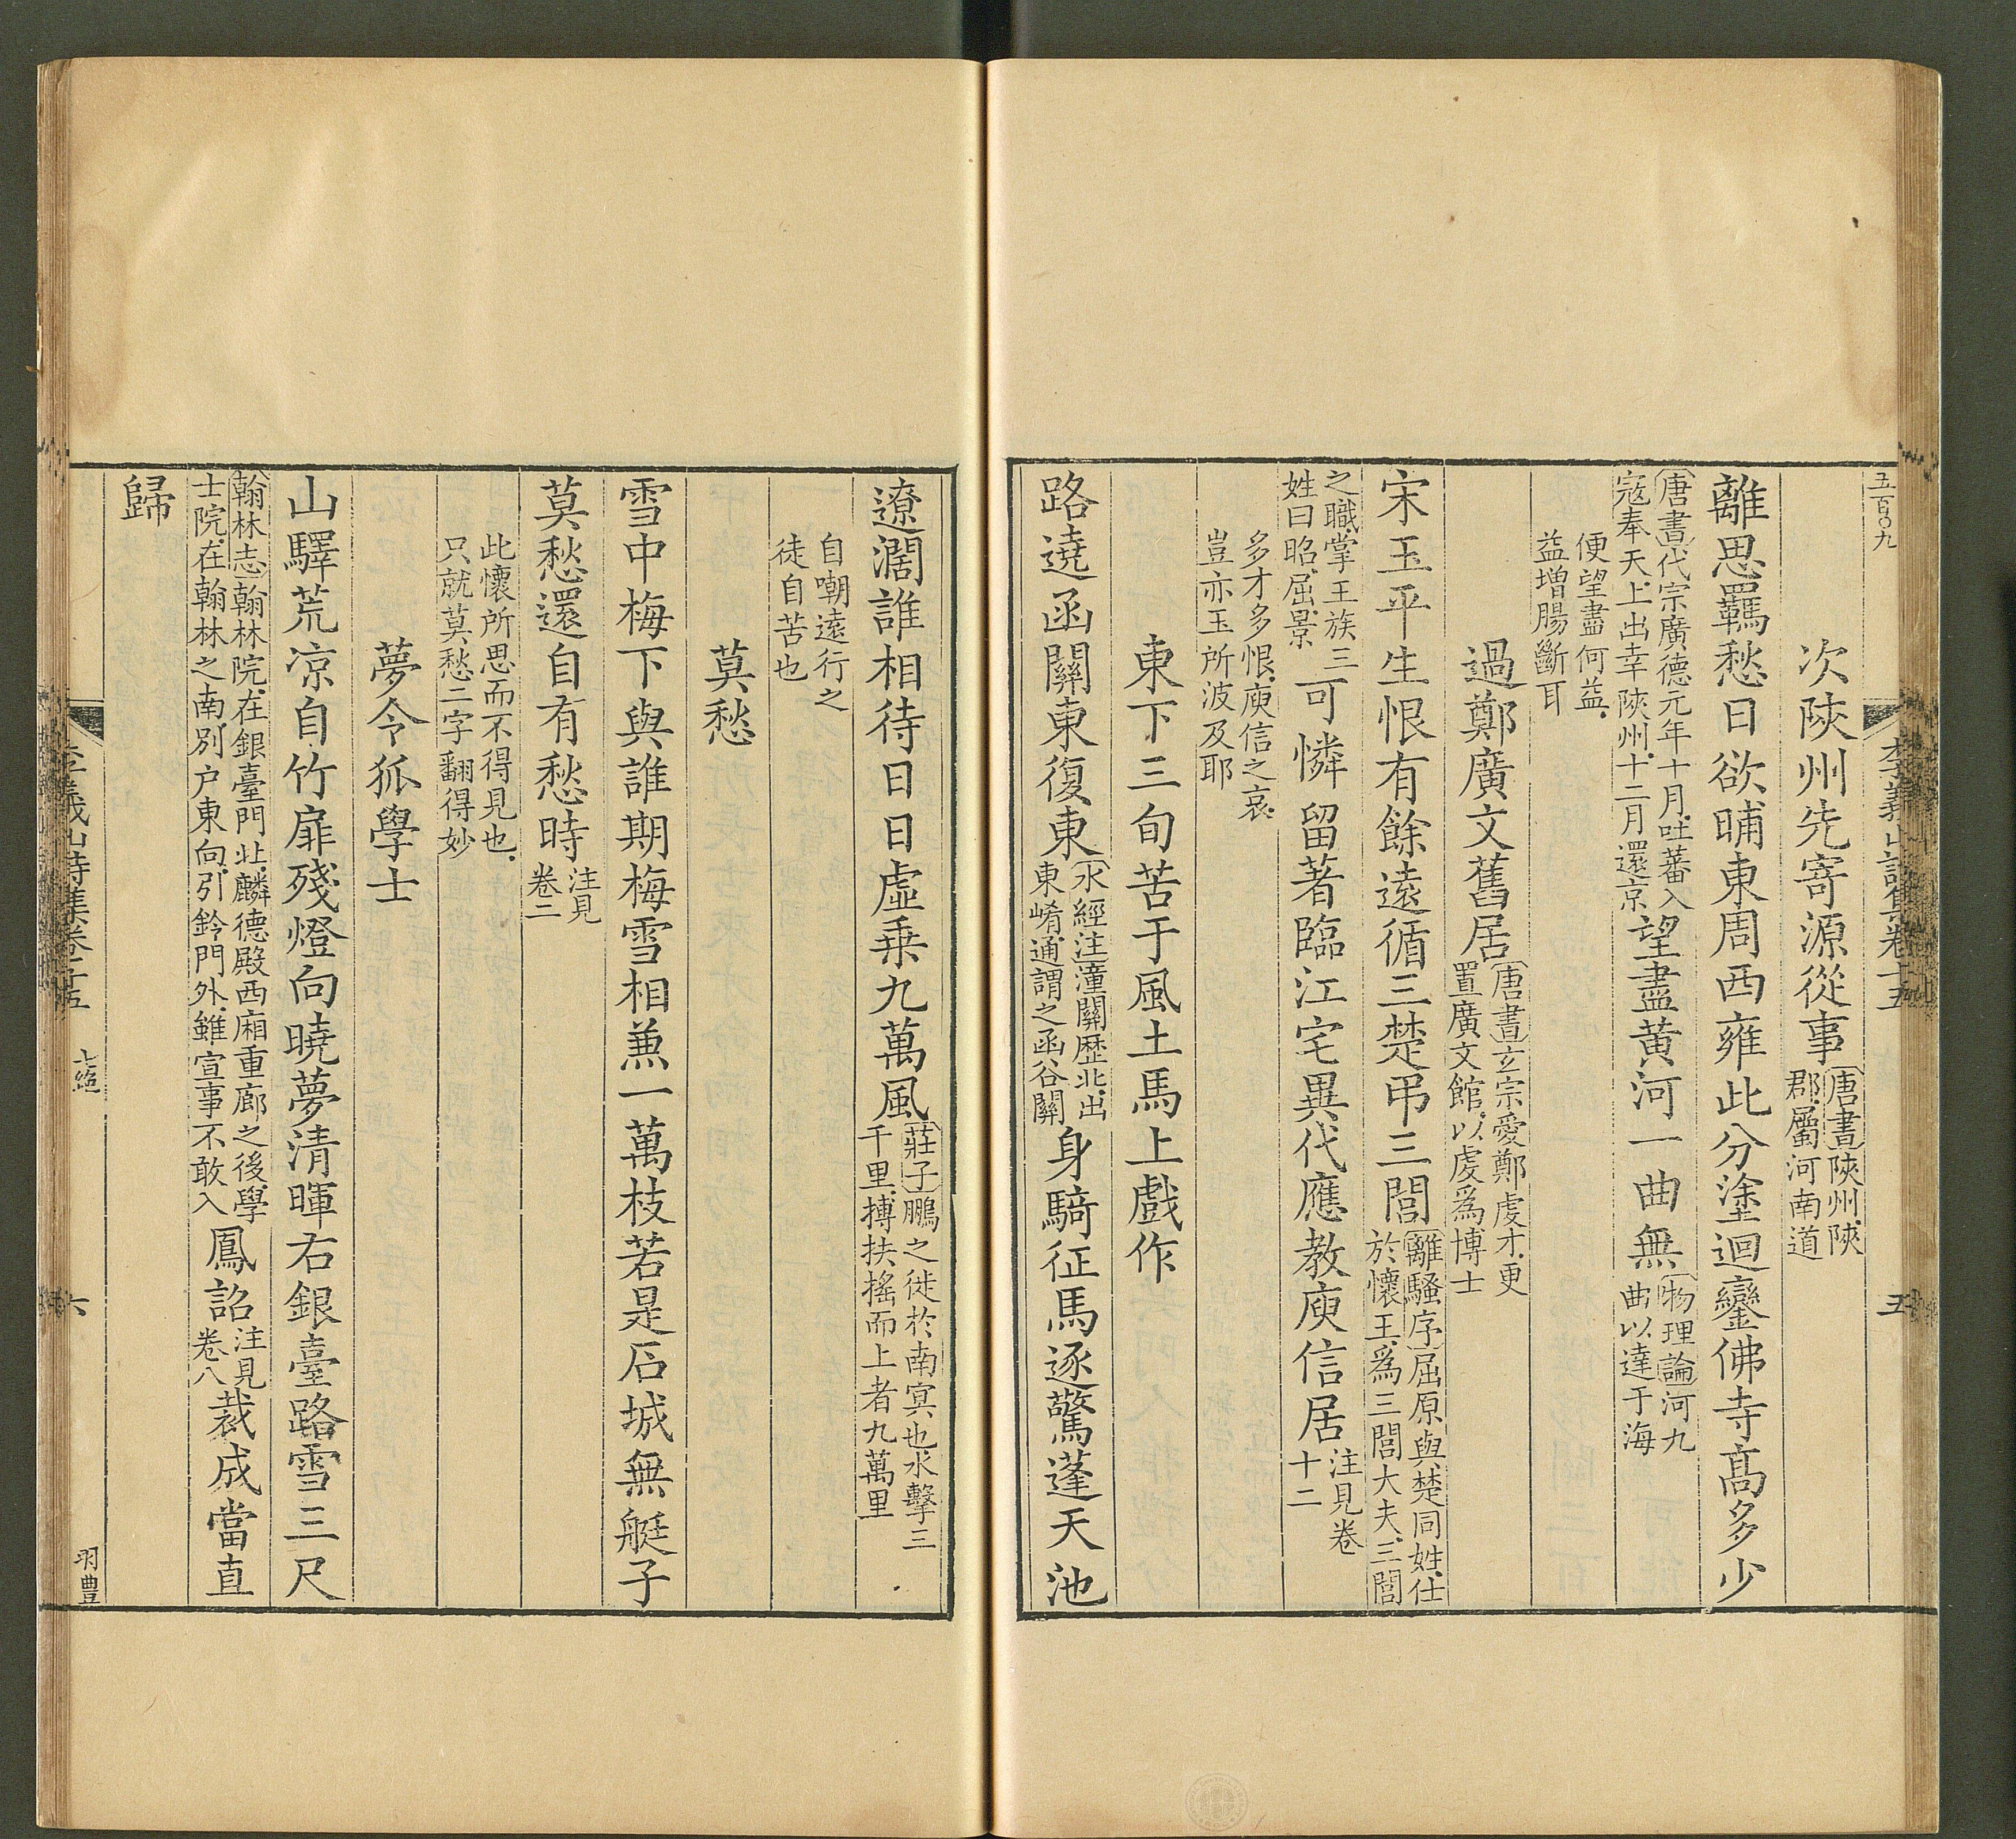 五百〇九
李義山詩集卷十五
五
次陜州先寄源從事唐書陜州陜郡屬河南道
離思羈愁日欲晡東周西雍此分塗迴鑾佛寺髙多少
唐書代宗廣德元年十月吐蕃入寇奉天上出幸陜州十二月還京望盡黃河一曲無物理論河九曲以達于海
便望盡何益益增腸斷耳
過鄭廣文舊居唐書玄宗愛鄭虔才更置廣文館以虔爲博士
宋玉平生恨有餘遠循三楚弔三閭離騷序屈原與楚同姓仕於懷王爲三閭大夫三閭
之職掌王族三姓曰昭屈景可憐留著臨江宅異代應教庾信居注見卷十二
多才多恨庾信之哀豈亦玉所波及耶
東下三旬苦于風土馬上戲作
路遶函關東復東水經注潼關歷北出東崤通謂之函谷關身騎征馬逐驚蓬天池
遼濶誰相待日日虛乗九萬風莊子鵬之徙於南冥也水擊三千里摶扶搖而上者九萬里
自嘲遠行之徒自苦也
莫愁
雪中梅下與誰期梅雪相兼一萬枝若是石城無艇子
莫愁還自有愁時注見卷二
此懷所思而不得見也只就莫愁二字翻得妙
夢令狐學士
山驛荒凉自竹扉殘燈向曉夢清暉右銀臺路雪三尺
翰林志翰林院在銀臺門北麟德殿西廂重廊之後學士院在翰林之南別户東向引鈴門外雖宣事不敢入鳳詔注見卷八裁成當直
歸
李義山詩集卷十五
七絕
六
羽豊